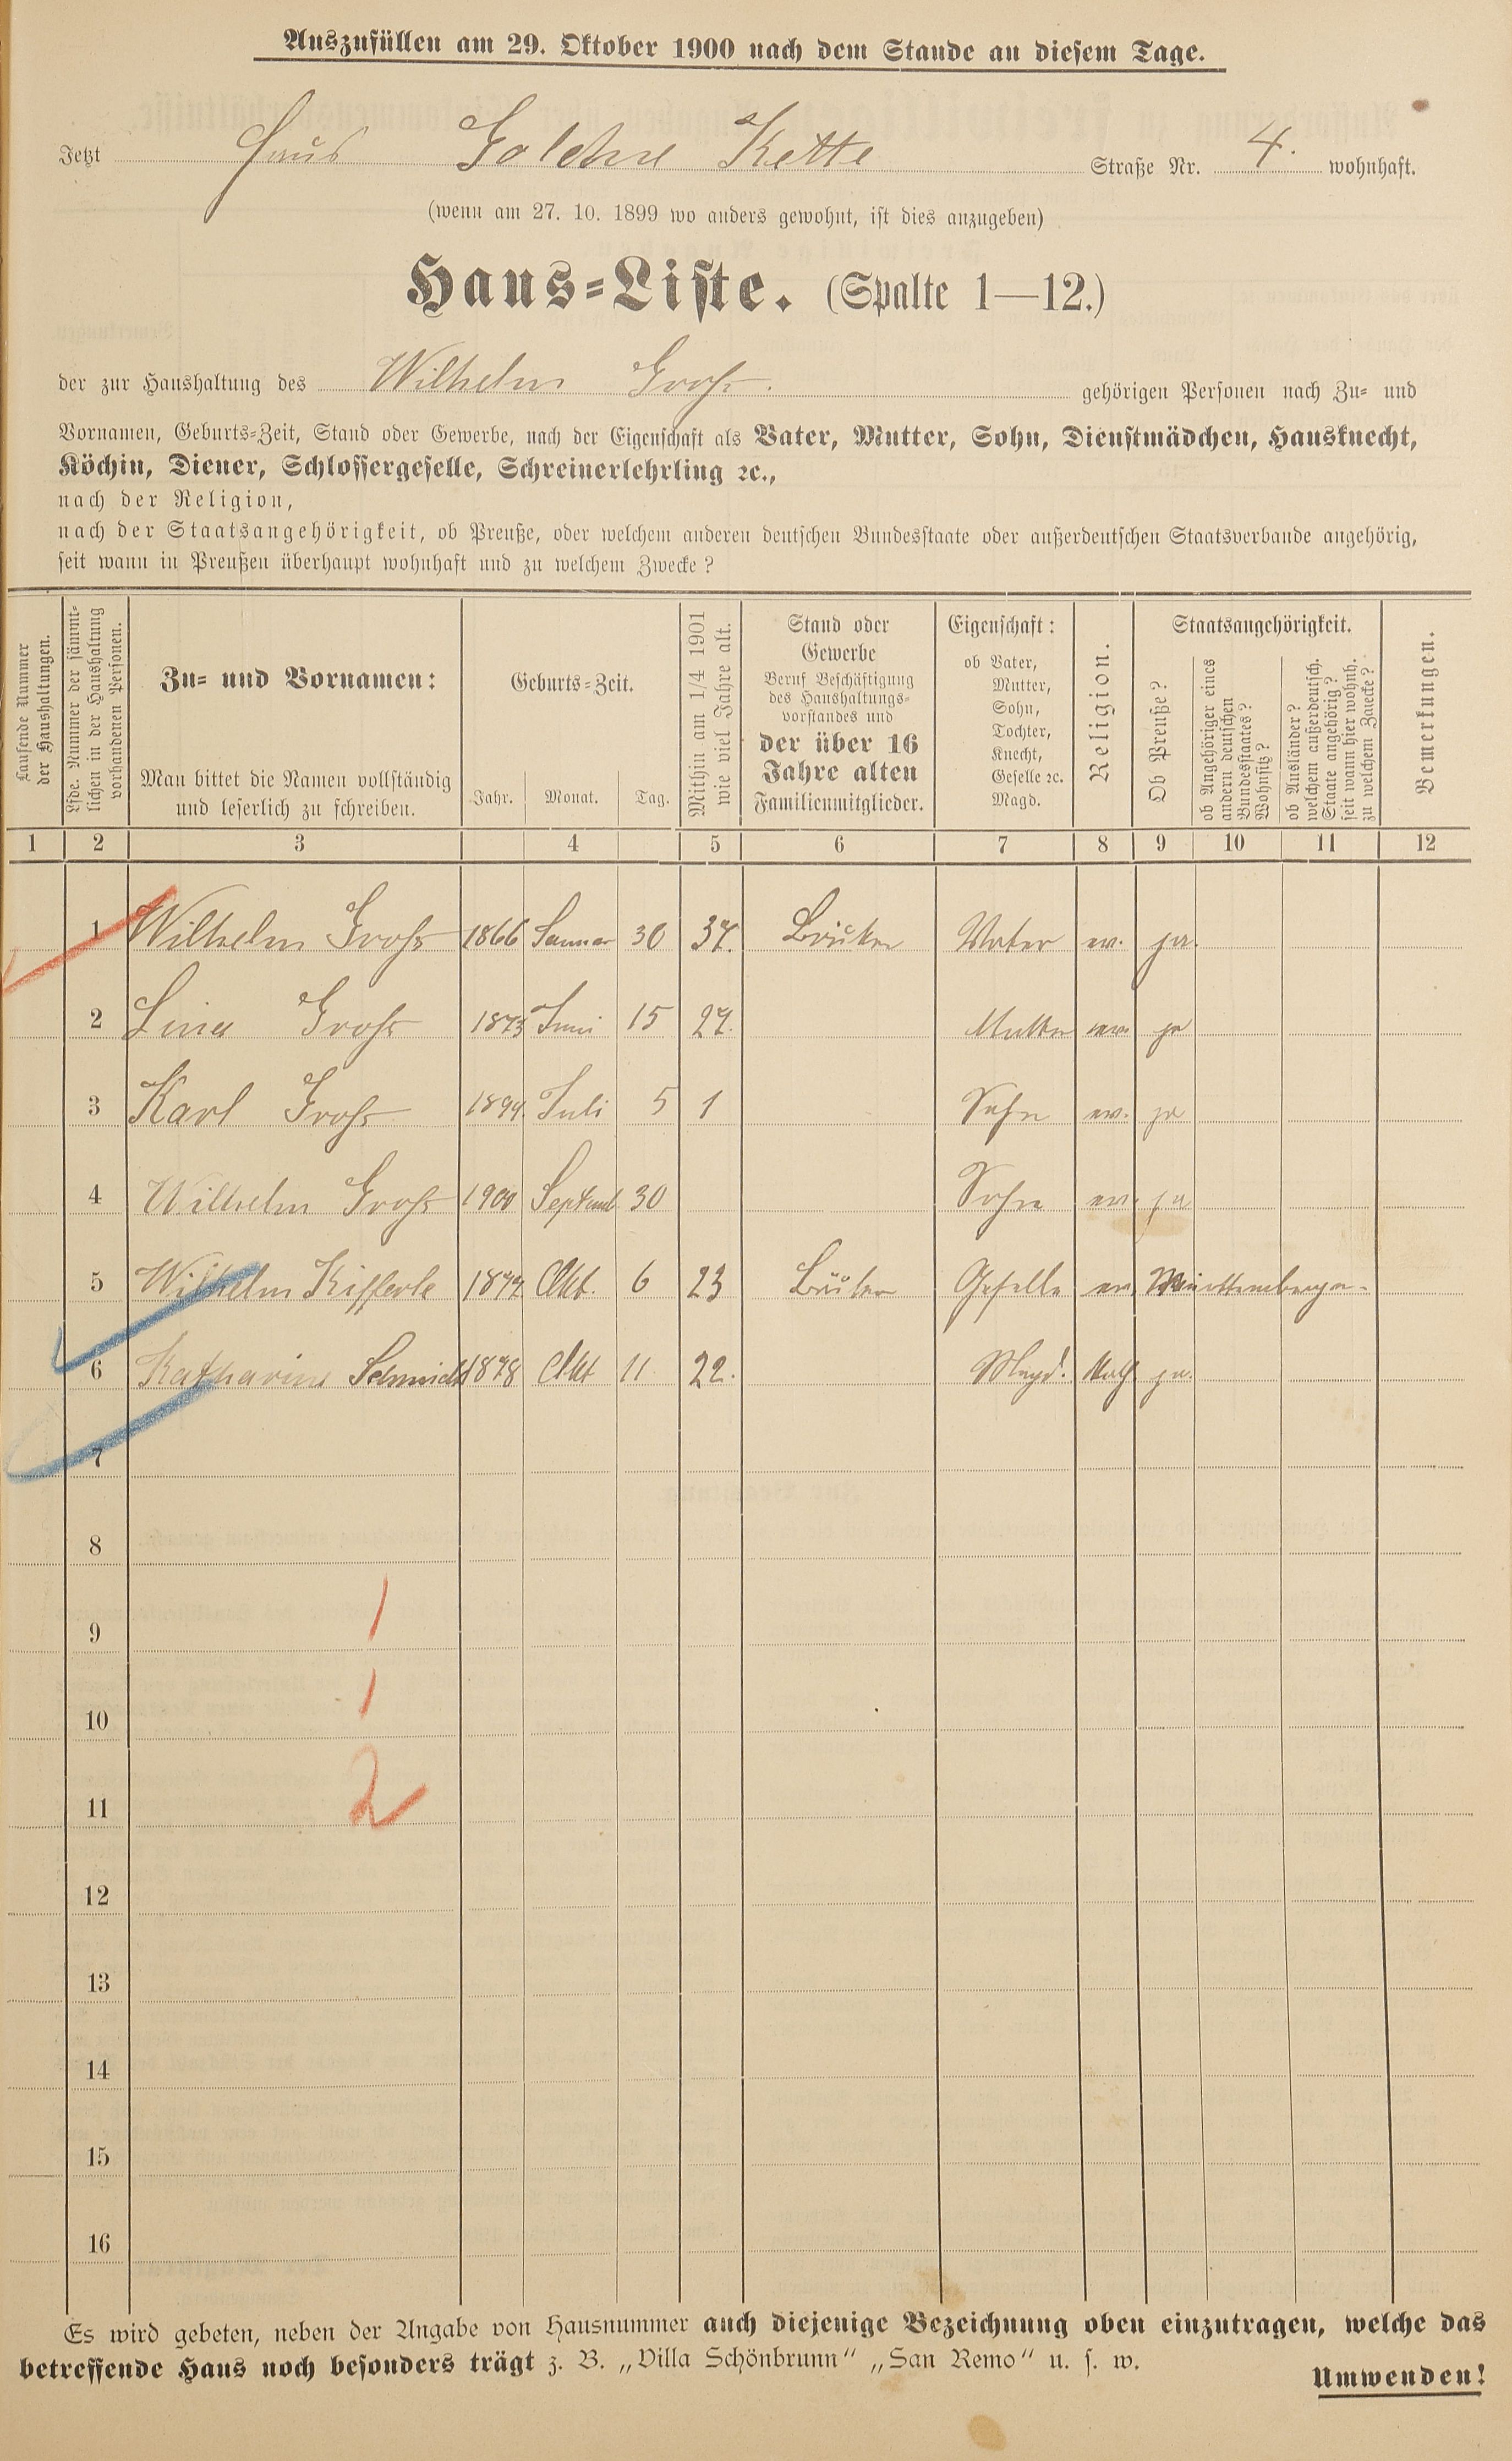 Auszufüllen am 29. Oktober 1900 nach dem Stande an diesem Tage.
Jetzt Haus Goldene Kette Straße Nr. 4. wohnhaft.
(wenn am 27. 10. 1899 wo anders gewohnt, ist dies anzugeben)
Haus-Liste. (Spalte 1—12.)
der zur Haushaltung des Wilhelm Groß. gehörigen Personen nach Zu- und
Vornamen, Geburts-Zeit, Stand oder Gewerbe, nach der Eigenschaft als Vater, Mutter, Sohn, Dienstmädchen, Hausknecht,
Köchin, Diener, Schlossergeselle, Schreinerlehrling ꝛc.,
nach der Religion,
nach der Staatsangehörigkeit, ob Preuße, oder welchem anderen deutschen Bundesstaate oder außerdeutschen Staatsverbande angehörig,
seit wann in Preußen überhaupt wohnhaft und zu welchem Zwecke?
Laufende Nummer
der Haushaltungen.
Lfde. Nummer der sämmt-
lichen in der Haushaltung
vorhandenen Personen.
Zu- und Vornamen:
Man bittet die Namen vollständig
und leserlich zu schreiben.
Geburts-Zeit.
Jahr. Monat. Tag.
Mithin am 1/4 1901
wie viel Jahre alt.
Stand oder
Gewerbe
Beruf Beschäftigung
des Haushaltungs-
vorstandes und
der über 16
Jahre alten
Familienmitglieder.
Eigenschaft:
ob Vater,
Mutter,
Sohn,
Tochter,
Knecht,
Geselle ꝛc.
Magd.
Religion.
Staatsangehörigkeit.
Ob Preuße?
ob Angehöriger eines
andern deutschen
Bundesstaates?
Wohnsitz?
ob Ausländer?
welchem außerdeutsch.
Staate angehörig?
seit wann hier wohnh.
zu welchem Zwecke?
Bemerkungen.
1 2 3 4 5 6 7 8 9 10 11 12
1 Wilhelm Groß 1866 Januar 30 34. Bäcker Vater ev. ja.
2 Lina Groß 1873 Juni 15 27. Mutter ev. ja
3 Karl Groß 1899. Juli 5 1 Sohn ev. ja
4 Wilhelm Groß 1900 Septemb 30 Sohn ev. ja
5 Wilhelm Kifferle 1877 Okt. 6 23 Bäcker Geselle ev. Württemberger.
6 Katharina Schmidt 1878 Okt 11 22. Magd. Kath. ja.
7
8
1
9
1
10
2
11
12
13
14
15
16
Es wird gebeten, neben der Angabe von Hausnummer auch diejenige Bezeichnung oben einzutragen, welche das
betreffende Haus noch besonders trägt z. B. „Villa Schönbrunn“ „San Remo“ u. s. w.
Umwenden!